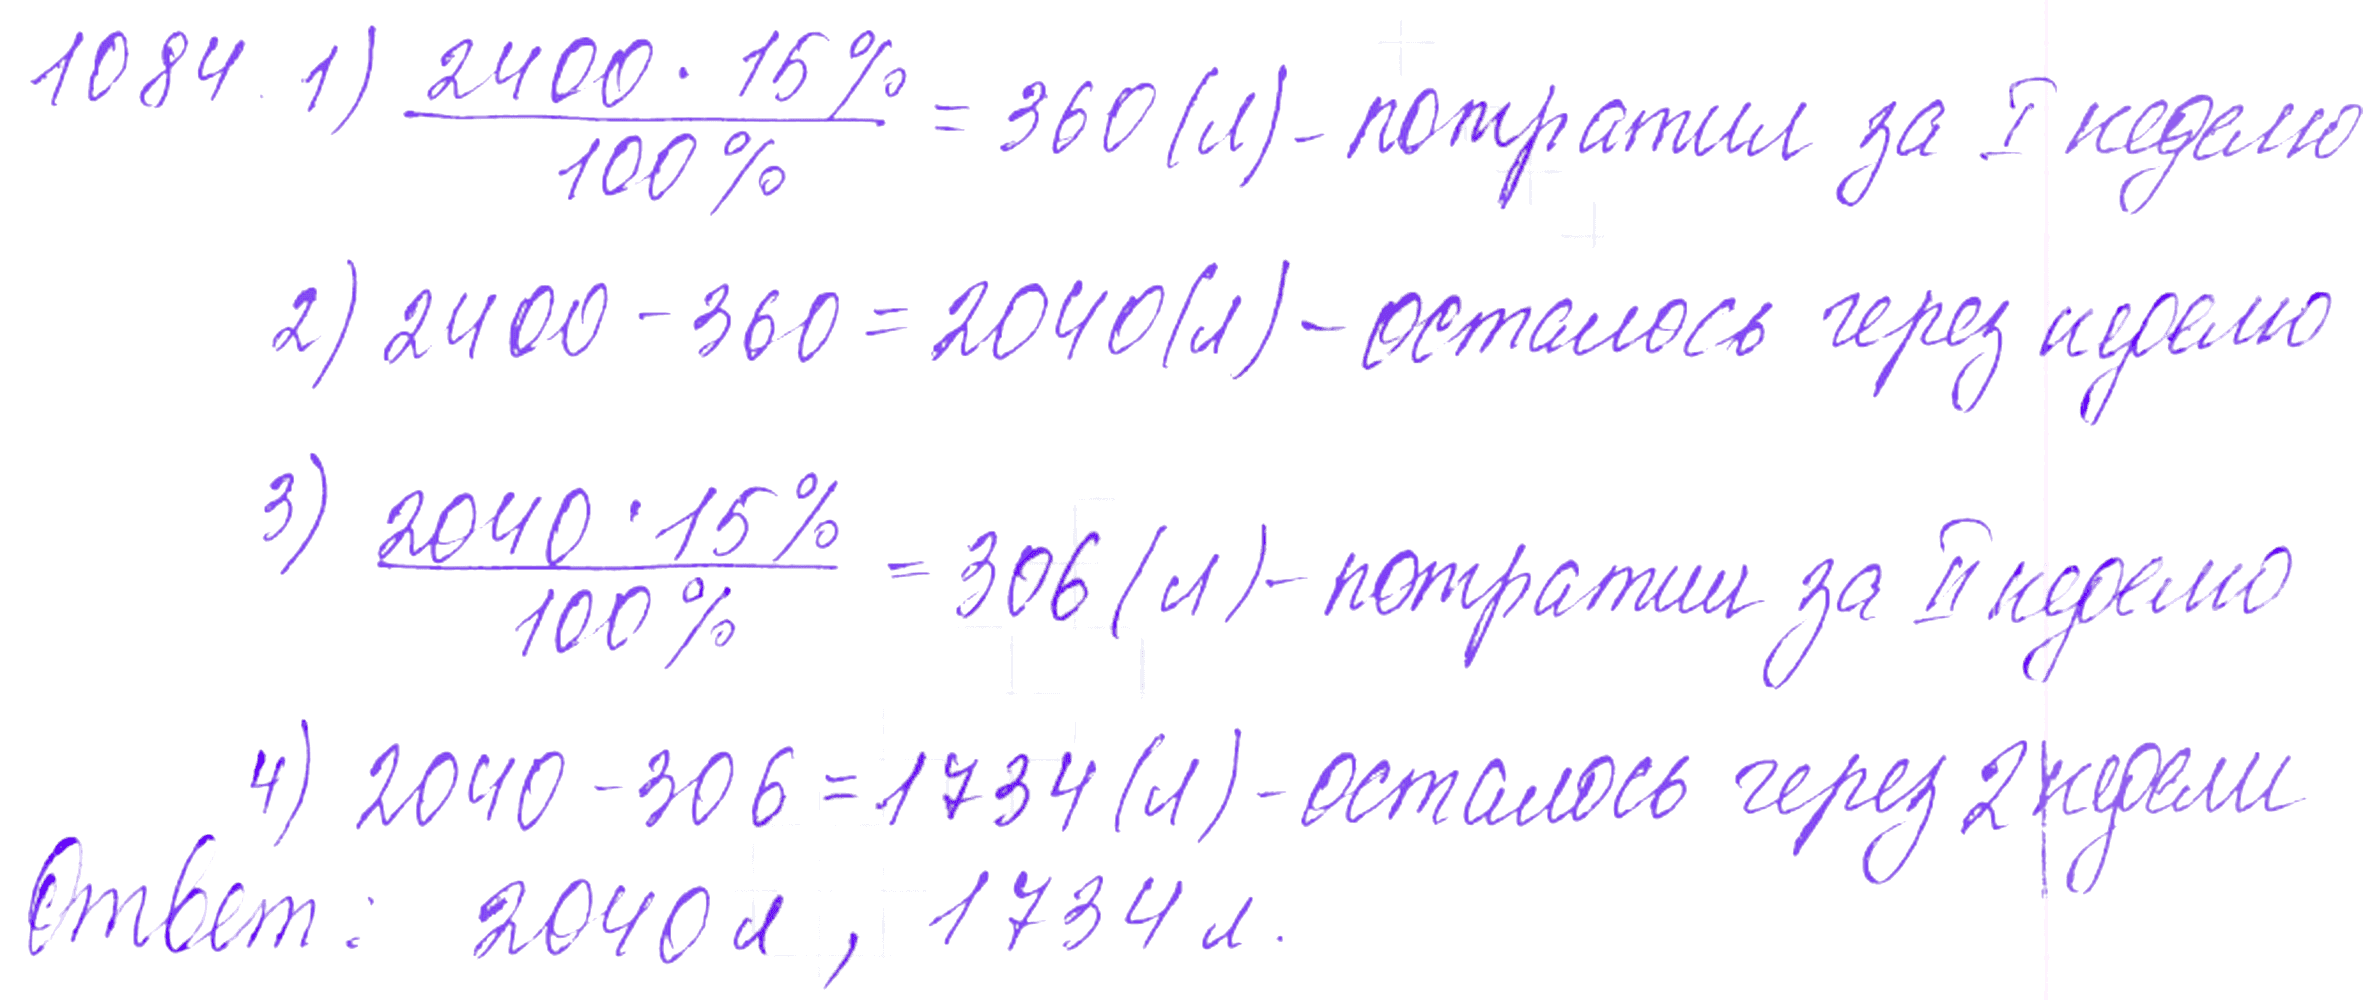 1084. 1) 2400 · 15% / 100% = 360 (л) - потратил за I неделю
2) 2400 - 360 = 2040 (л) - осталось через неделю
3) 2040 · 15% / 100% = 306 (л) - потратили за II неделю
4) 2040 - 306 = 1734 (л) - осталось через 2 недели
Ответ: 2040 л, 1734 л.